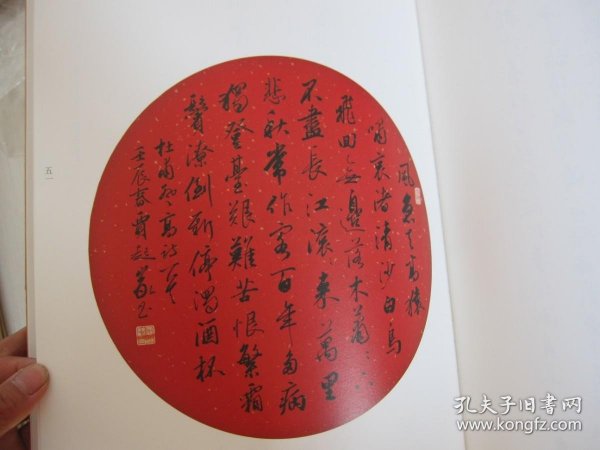 風急天高猿
嘯哀渚清沙白鳥
飛回無邊落木蕭〻下
不盡長江滾來萬里
悲秋常作客百年多病
獨登臺艱難苦恨繁霜
鬢潦倒新停濁酒杯
杜甫登高詩一首
壬辰春
五一
孔夫子旧书网
www.kongfz.com